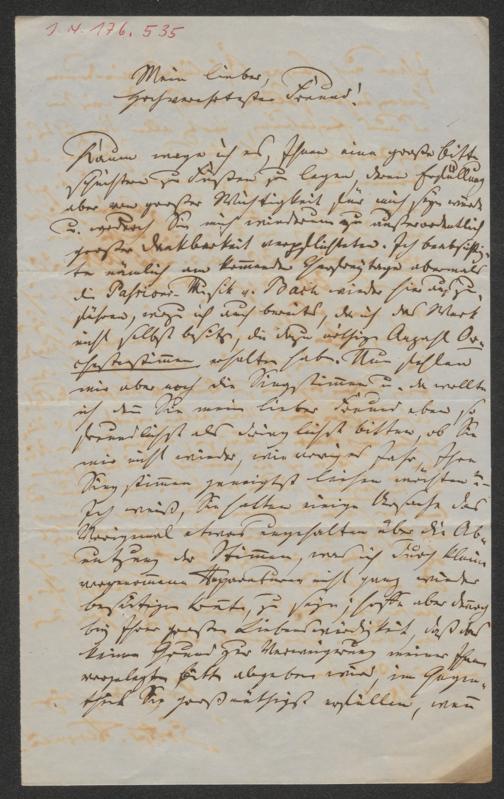 1. N. 176.535
Mein lieber,
Hochverehrtester Freund!
Kaum wage ich es, Ihnen eine große Bitte
zu Füßen zu legen, deren Erfüllung
aber von großer Wichtigkeit für mich seyn würde
u. wodurch Sie mich wiederum zu außerordentlich
großer Dankbarkeit verpflichteten. Ich beabsichtig-
te nämlich am kommenden Charfreytage abermals
die Passions-Musik v. Bach wieder hier aufzu-
führen, wozu ich auch bereits, da ich das Werk
nicht selbst besitze, die dazu nöthige Anzahl Or-
chesterstimmen erhalten habe. Nun fehlen
mir aber noch die Singstimmen u. da wollte
ich denn Sie mein lieber Freund eben so
freundlichst als dringlichst bitten, ob Sie
mir nicht wieder, wie voriges Jahr, Ihre
Singstimmen geneigtest leihen möchten.
Ich weiß, Sie hatten einige Ursache das
Vorigemal etwas ungehalten über die Ab-
nutzung der Stimmen, was ich durch kleine
vorgenommene Reparaturen nicht ganz wieder
beseitigen konnte, zu seyn; hoffe aber dennoch
bey Ihrer großen Liebenswürdigkeit, daß das
keinen Grund zur Verweigerung meiner Ihnen
vorgelegten Bitte abgeben wird, im Gegen-
theil Sie großmüthigst erfüllen, wenn